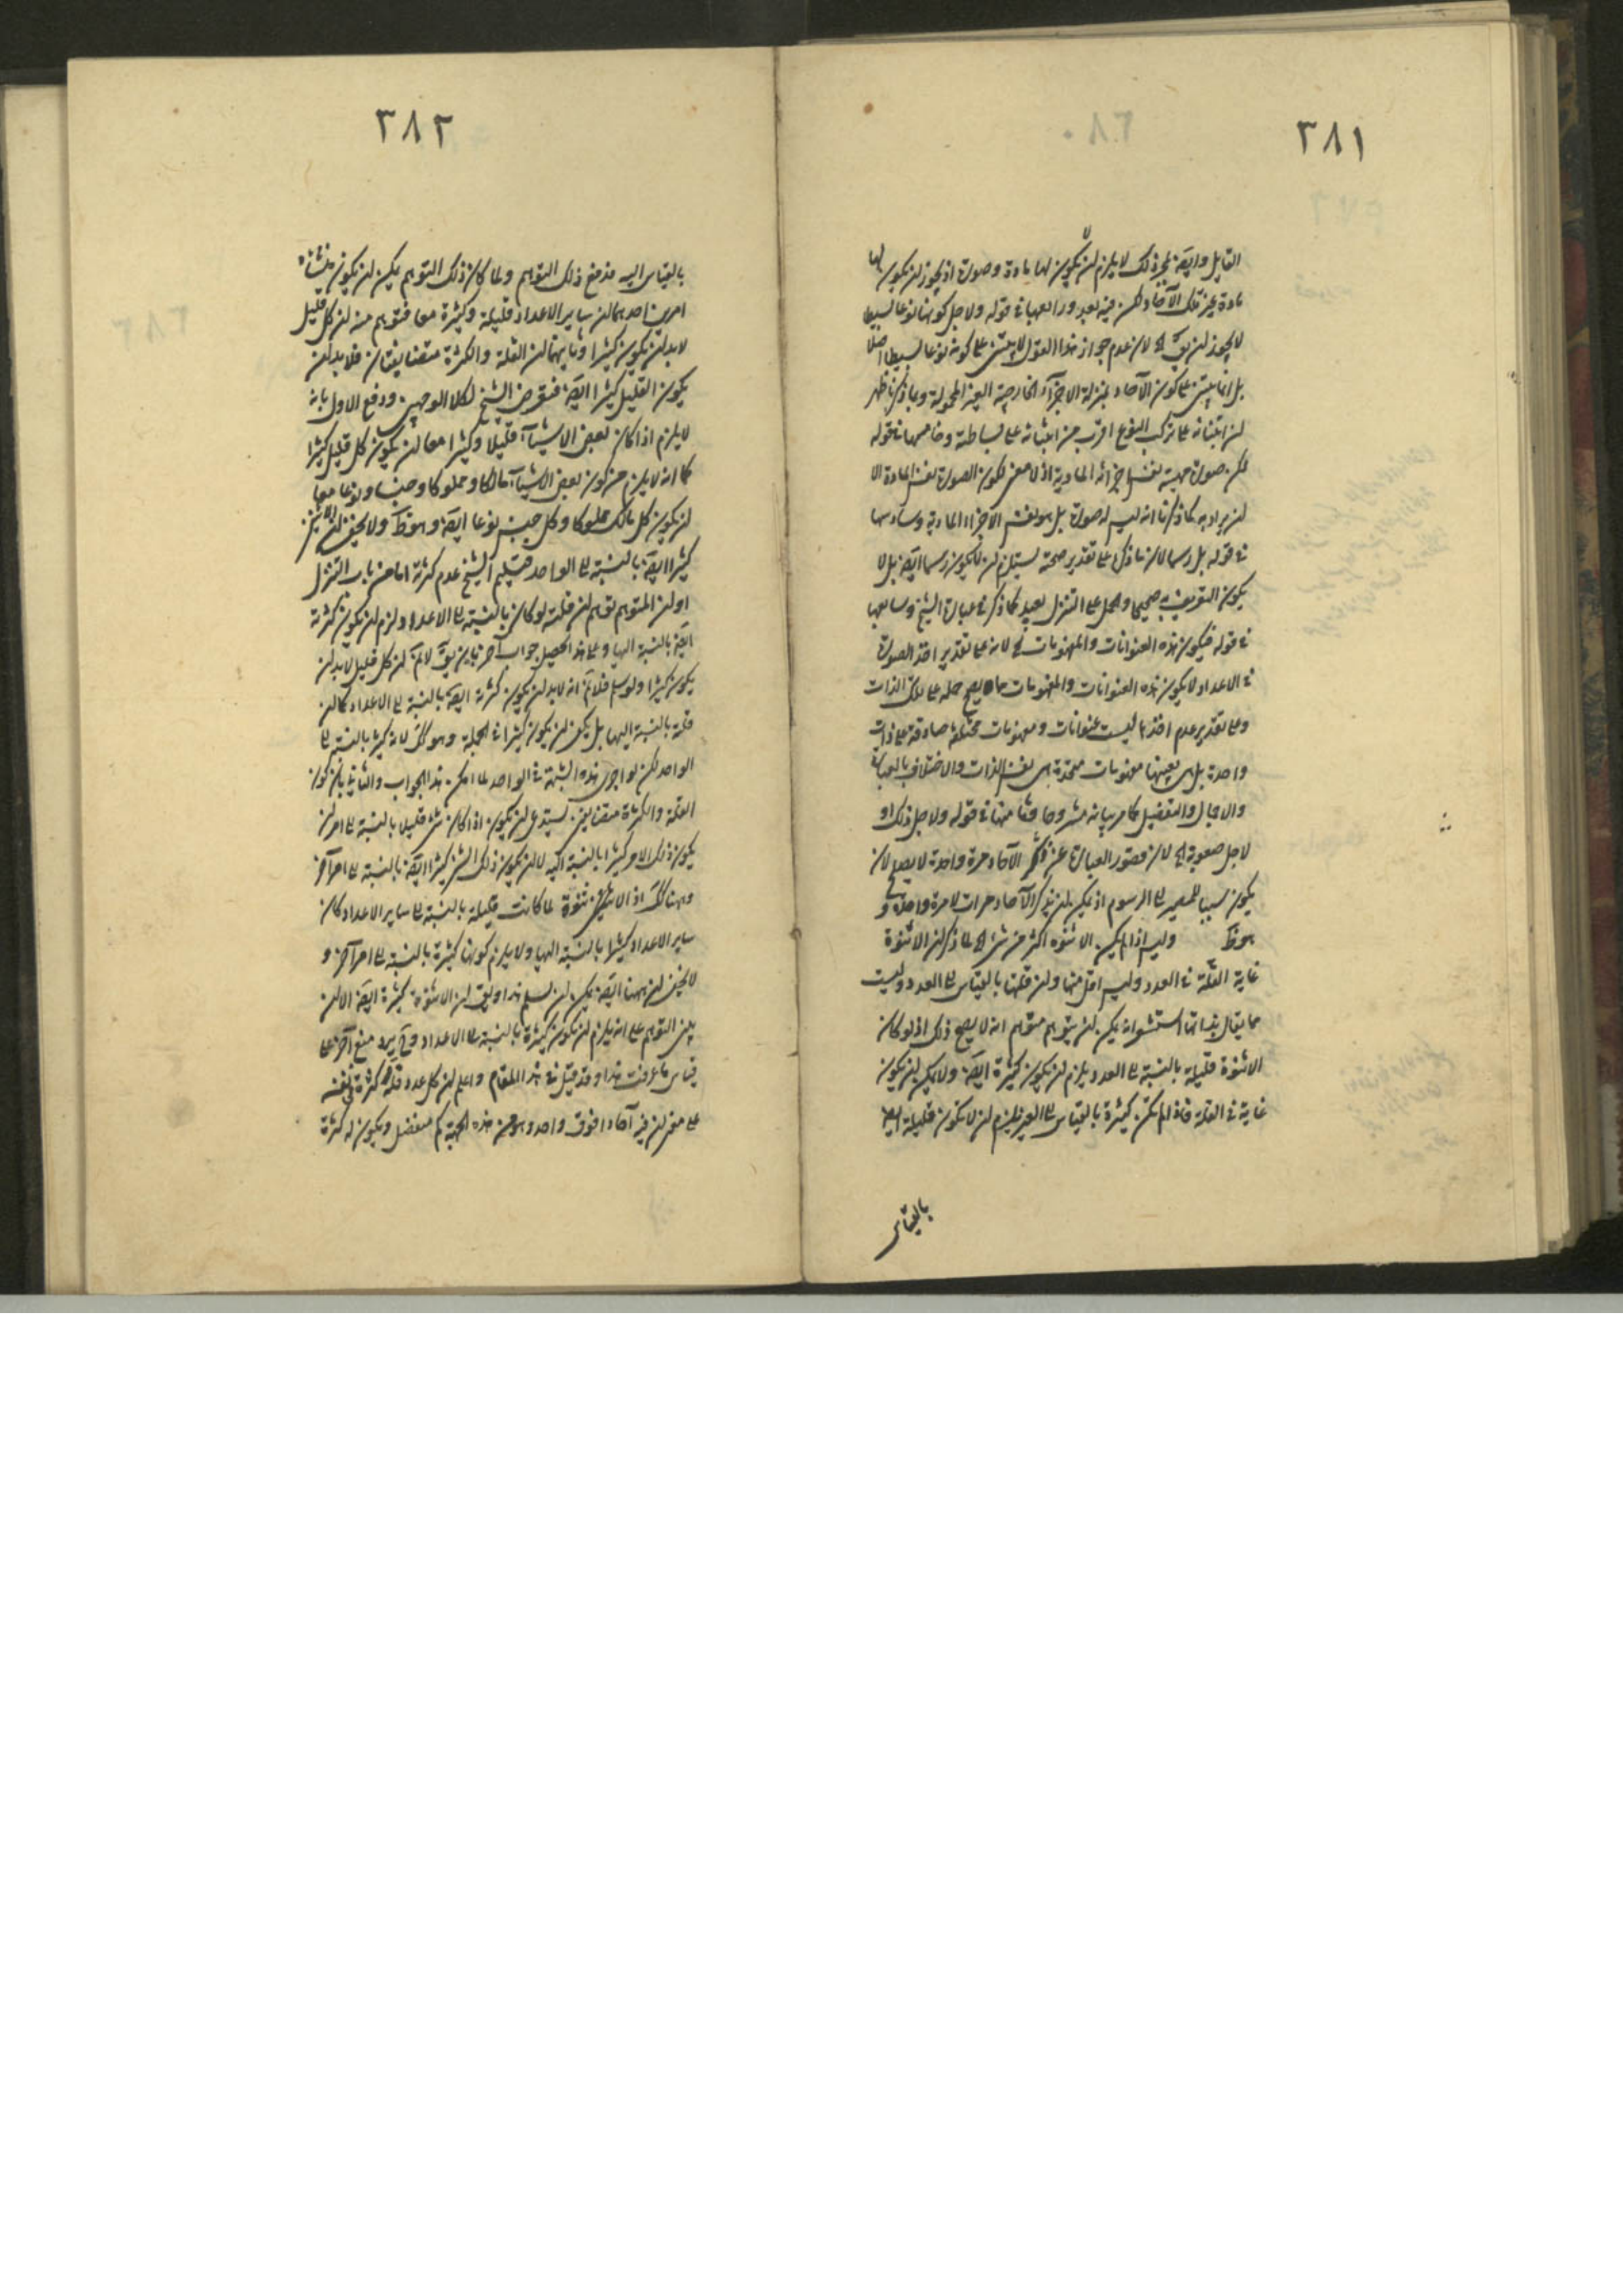 ٣٨١
القايل وايضا بمجرد ذلك لا يلزم ان لا يكون لها مادة وصورة اذ يجوز ان يكون لها
مادة غير تلك الآحاد لكن فيه بعد ورابعها في قوله ولاجل كونها نوعا بسيطا
لا يجوز ان يق الخ لان عدم جواز هذا القول لا يبتنى على كونه نوعا بسيطا اصلا
بل انما يبتنى على كون الآحاد بمنزلة الاجزآء الخارجية الغير المحمولة وبما ذكرنا ظهر
ان ابتنائه على تركب النوع اقرب من ابتنائه على بساطته وخامسها في قوله
لكن صورته عينه نفس اجزائه المادية اذ لا معنى لكون الصورة نفس المادة الا
ان يراد به كما ذكرنا انه ليس له صورة بل هو نفس الاجزاء المادية وسادسها
في قوله بل رسما لان ما ذكره على تقدير صحته يستلزم ان لا يكون رسما ايضا بل لا
يكون التعريف به صحيحا والحمل على التنزل بعيد كما ذكر في عبارة الشيخ وسابعها
في قوله فيكون هذه العنوانات والمفهومات الخ لانه على تقدير اخذ الصورة
في الاعداد لا يكون هذه العنوانات والمفهومات مما يصح حمله على تلك الذات
وعلى تقدير عدم اخذها ليست عنوانات ومفهومات مختلفة صادقة على ذات
واحدة بل هي بعينها مفهومات متحدة هي نفس الذات والاختلاف بالعبارة
والاجمال والتفصيل كما مر بيانه مشروحا وثامنها في قوله ولاجل ذلك او
لاجل صعوبة الخ لان قصور العبارة عن ذكر الآحاد مرة واحدة لا يصلح لان
يكون سببا للمصير الى الرسوم اذ يمكن ان يذكر الآحاد مرات لا مرة واحدة و
هو ظ وليس اذا لم يكن الاثنوه اكثر من شئ الخ لما ذكر ان الاثنوة
غاية القلة في العدد وليس اقل منها وان قلتها بالقياس الى العدد وليست
مما يقال بذاتها استشعر انه يمكن ان يتوهم متوهم انه لا يصح ذلك اذ لو كان
الاثنوة قليلة بالنسبة الى العدد يلزم ان يكون كثيرة ايضا ولا يمكن ان يكون
غاية في القلة فاذا لم تكن كثيرة بالقياس الى الغير فيلزم ان لا تكون قليلة ايضا
بالقياس
٣٨٢
بالقياس اليه فدفع ذلك التوهم ولما كان ذلك التوهم يمكن ان يكون منشأه
امرين احدهما ان ساير الاعداد قليلة وكثيرة معا فتوهم منه ان كل قليل
لا بد ان يكون كثيرا وثانيهما ان القلة والكثرة متضايفان فلا بد ان
يكون القليل كثيرا ايضا فتعرض الشيخ لكلا الوجهين ودفع الاول بانه
لا يلزم اذا كان بعض الاشيآء قليلا وكثيرا معا ان يكون كل قليل كثيرا
كما انه لا يلزم من كون بعض الاشيآء مالكا ومملوكا وجنسا ونوعا معا
ان يكون كل مالك مملوكا وكل جنس نوعا ايضا وهو ظ ولا يخفى ان الاثنين
كثيرا ايضا بالنسبة الى الواحد فتسليم الشيخ عدم كثرته اما من باب التنزل
او ان المتوهم توهم ان قلته لو كان بالنسبة الى الاعداد لزم ان يكون كثرته
ايضا بالنسبة اليها وعلى هذا تحصيل جواب آخر بان يق لا نم ان كل قليل لا بد ان
يكون كثيرا ولو سلم فلا نم انه لا بد ان يكون كثرته ايضا بالنسبة الى الاعداد كما ان
قلته بالنسبة اليها بل يكفى ان يكون كثيرا في الجملة وهو كك لانه كثير بالنسبة الى
الواحد لكن لو اجرى هذه الشبهة في الواحد لما امكن هذا الجواب والثاني بان كون
القلة والكثرة متضايفين يستدعى ان يكون اذا كان شئ قليلا بالنسبة الى امر ان
يكون ذلك الامر كثيرا بالنسبة اليه لا ان يكون ذلك الشئ كثيرا ايضا بالنسبة الى امر آخر
وهنا كك اذ الاثنوة لما كانت قليلة بالنسبة الى ساير الاعداد كان
ساير الاعداد كثيرا بالنسبة اليها ولا يلزم كونها كثيرة بالنسبة الى امر آخر و
لا يخفى ان ههنا ايضا يمكن ان يسلم هذا ويق ان الاثنوة كثيرة ايضا الا ان
يبنى التوهم على انه يلزم ان يكون كثيرة بالنسبة الى الاعداد وح يرد منع آخر على
قياس ما عرفت هذا وقد قيل في هذا المقام واعلم ان كل عدد فله كثرة في نفسه
على معنى ان فيه آحادا فوق واحد وهو من هذه الجهة كم منفصل ويكون له كثرة